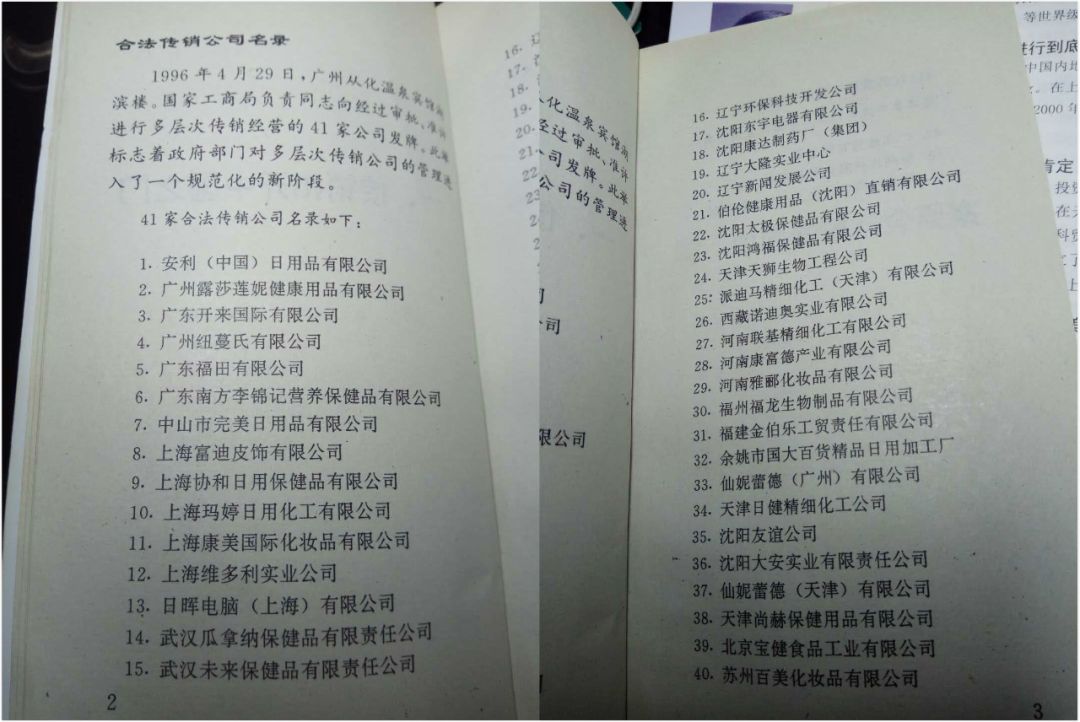 合法传销公司名录
1996年4月29日，广州从化温泉宾馆湖
滨楼。国家工商局负责同志向经过审批、准许
进行多层次传销经营的41家公司发牌。此举
标志着政府部门对多层次传销公司的管理进
入了一个规范化的新阶段。
41家合法传销公司名录如下：
1. 安利（中国）日用品有限公司
2. 广州露莎莲妮健康用品有限公司
3. 广东开来国际有限公司
4. 广州纽蔓氏有限公司
5. 广东福田有限公司
6. 广东南方李锦记营养保健品有限公司
7. 中山市完美日用品有限公司
8. 上海富迪皮饰有限公司
9. 上海协和日用保健品有限公司
10. 上海玛婷日用化工有限公司
11. 上海康美国际化妆品有限公司
12. 上海维多利实业公司
13. 日晖电脑（上海）有限公司
14. 武汉瓜拿纳保健品有限责任公司
15. 武汉未来保健品有限责任公司
2
16. 辽
17. 沈
18.
19.
20.
21.
22.
23
24
从化温泉宾馆湖
经过审批、准许
公司发牌。此举
公司的管理进
司
公司
限公司
司
16. 辽宁环保科技开发公司
17. 沈阳东宇电器有限公司
18. 沈阳康达制药厂（集团）
19. 辽宁大隆实业中心
20. 辽宁新闻发展公司
21. 伯伦健康用品（沈阳）直销有限公司
22. 沈阳太极保健品有限公司
23. 沈阳鸿福保健品有限公司
24. 天津天狮生物工程公司
25. 派迪马精细化工（天津）有限公司
26. 西藏诺迪奥实业有限公司
27. 河南联基精细化工有限公司
28. 河南康富德产业有限公司
29. 河南雅郦化妆品有限公司
30. 福州福龙生物制品有限公司
31. 福建金伯乐工贸责任有限公司
32. 余姚市国大百货精品日用加工厂
33. 仙妮蕾德（广州）有限公司
34. 天津日健精细化工公司
35. 沈阳友谊公司
36. 沈阳大安实业有限责任公司
37. 仙妮蕾德（天津）有限公司
38. 天津尚赫保健用品有限公司
39. 北京宝健食品工业有限公司
40. 苏州百美化妆品有限公司
3
等世界级
进行到底
中国内地
。在上
2000年
肯定
投资